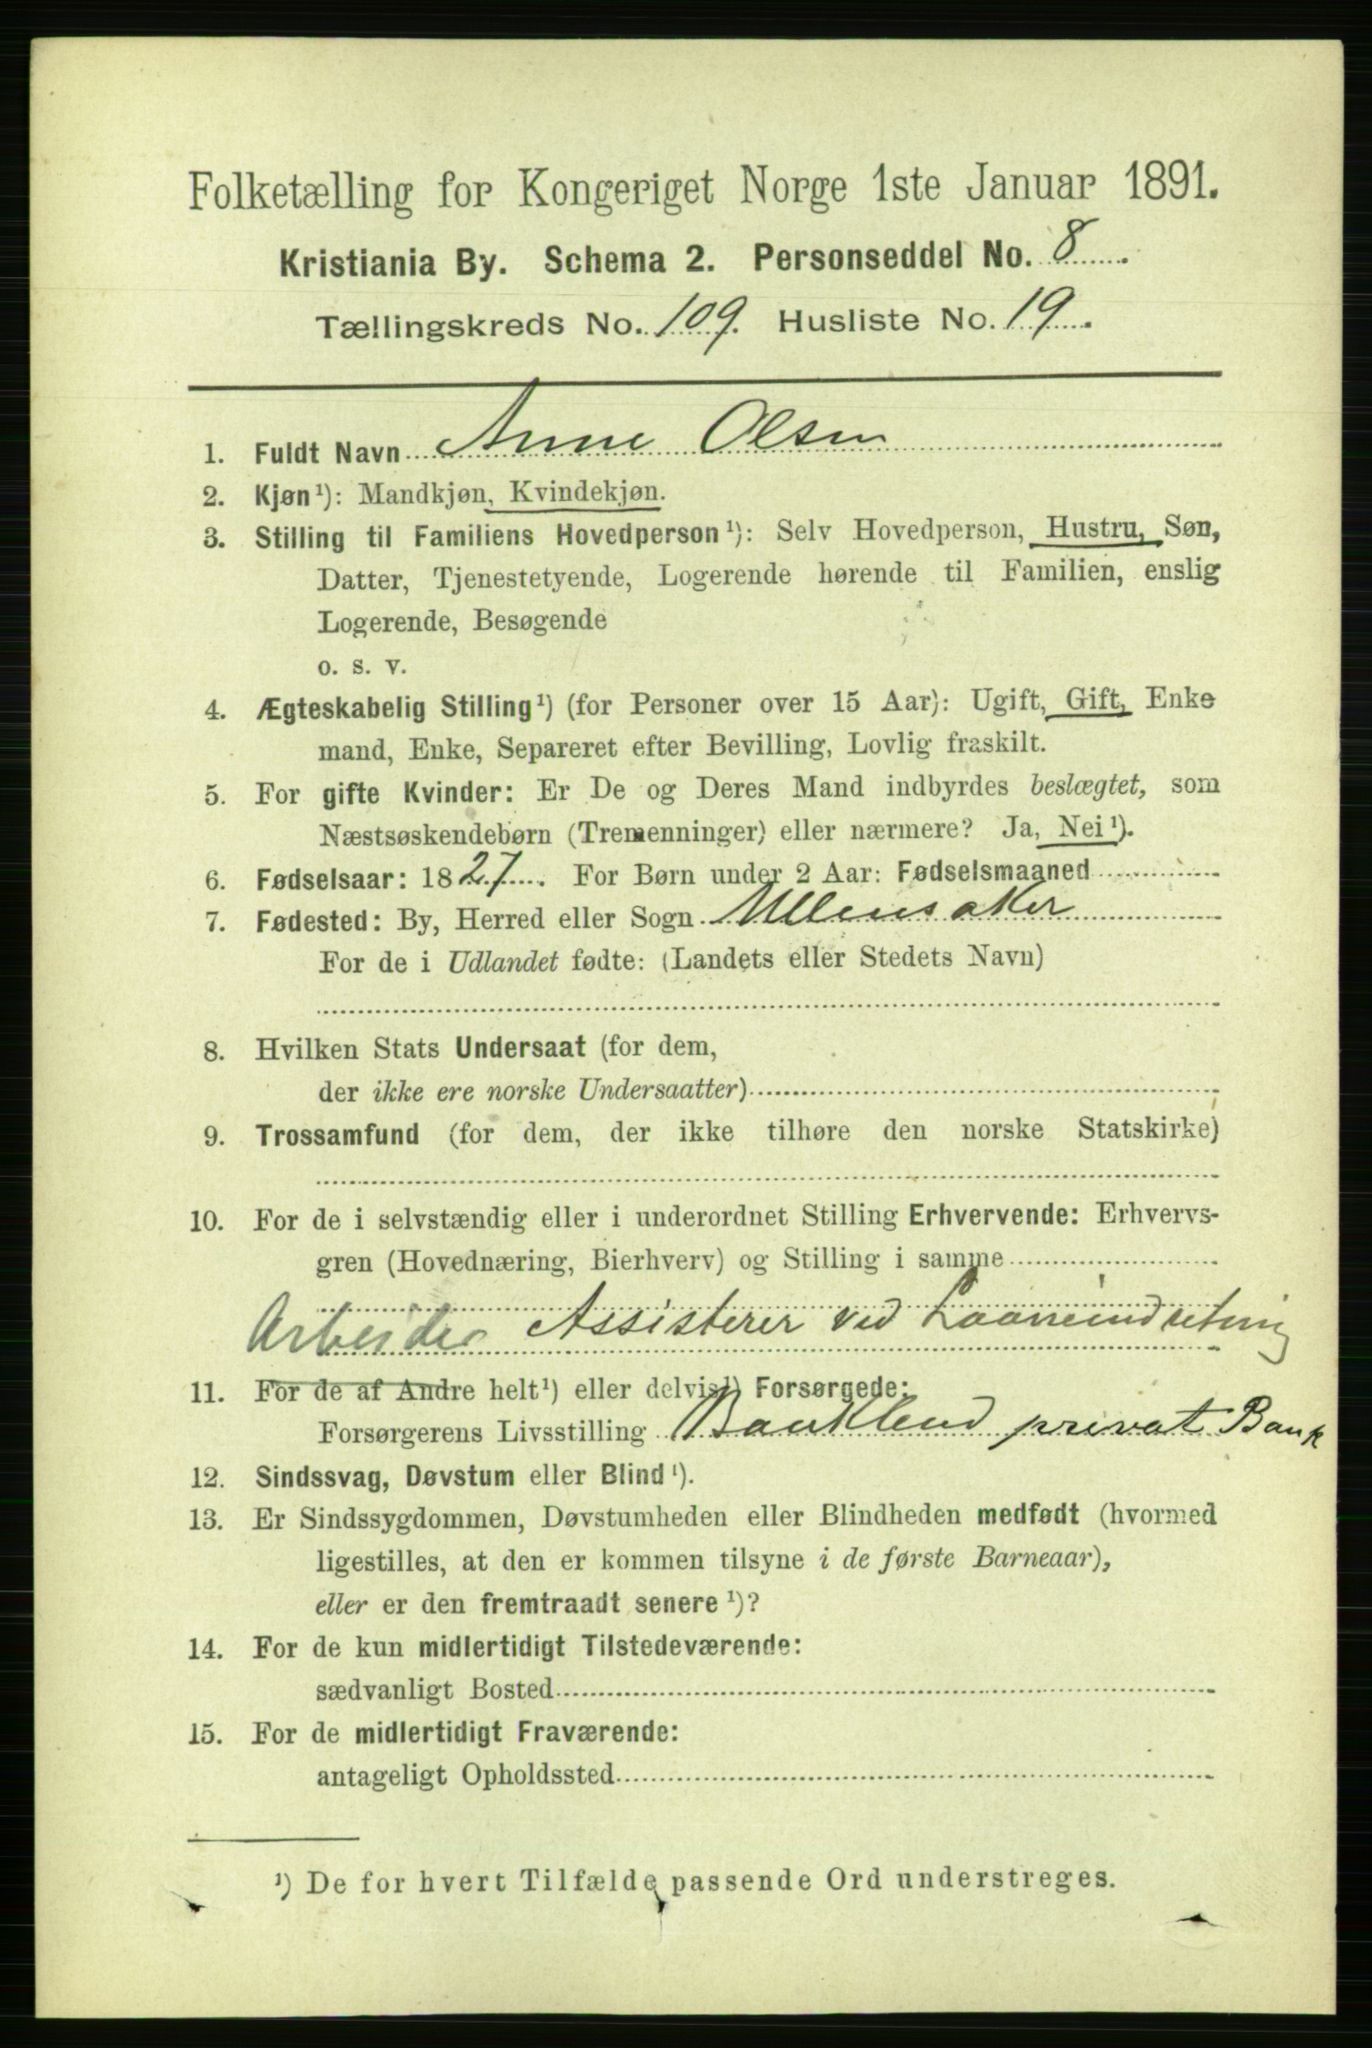 Folketælling for Kongeriget Norge 1ste Januar 1891.
Kristiania By. Schema 2. Personseddel No. 8
Tællingskreds No. 109. Husliste No. 19.
1. Fuldt Navn Anne Olsen
2. Kjøn¹): Mandkjøn, Kvindekjøn.
3. Stilling til Familiens Hovedperson¹): Selv Hovedperson, Hustru, Søn,
Datter, Tjenestetyende, Logerende hørende til Familien, enslig
Logerende, Besøgende
o. s. v.
4. Ægteskabelig Stilling¹) (for Personer over 15 Aar): Ugift, Gift, Enke
mand, Enke, Separeret efter Bevilling, Lovlig fraskilt.
5. For gifte Kvinder: Er De og Deres Mand indbyrdes beslægtet, som
Næstsøskendebørn (Tremenninger) eller nærmere? Ja, Nei¹).
6. Fødselsaar: 1827. For Børn under 2 Aar: Fødselsmaaned
7. Fødested: By, Herred eller Sogn Ullensaker
For de i Udlandet fødte: (Landets eller Stedets Navn)
8. Hvilken Stats Undersaat (for dem,
der ikke ere norske Undersaatter)
9. Trossamfund (for dem, der ikke tilhøre den norske Statskirke)
10. For de i selvstændig eller i underordnet Stilling Erhvervende: Erhvervs-
gren (Hovednæring, Bierhverv) og Stilling i samme
Arbeider Assisterer ved Laaneindretning
11. For de af Andre helt¹) eller delvis¹) Forsørgede:
Forsørgerens Livsstilling privat Bank
12. Sindssvag, Døvstum eller Blind¹).
13. Er Sindssygdommen, Døvstumheden eller Blindheden medfødt (hvormed
ligestilles, at den er kommen tilsyne i de første Barneaar),
eller er den fremtraadt senere¹)?
14. For de kun midlertidigt Tilstedeværende:
sædvanligt Bosted
15. For de midlertidigt Fraværende:
antageligt Opholdssted
¹) De for hvert Tilfælde passende Ord understreges.